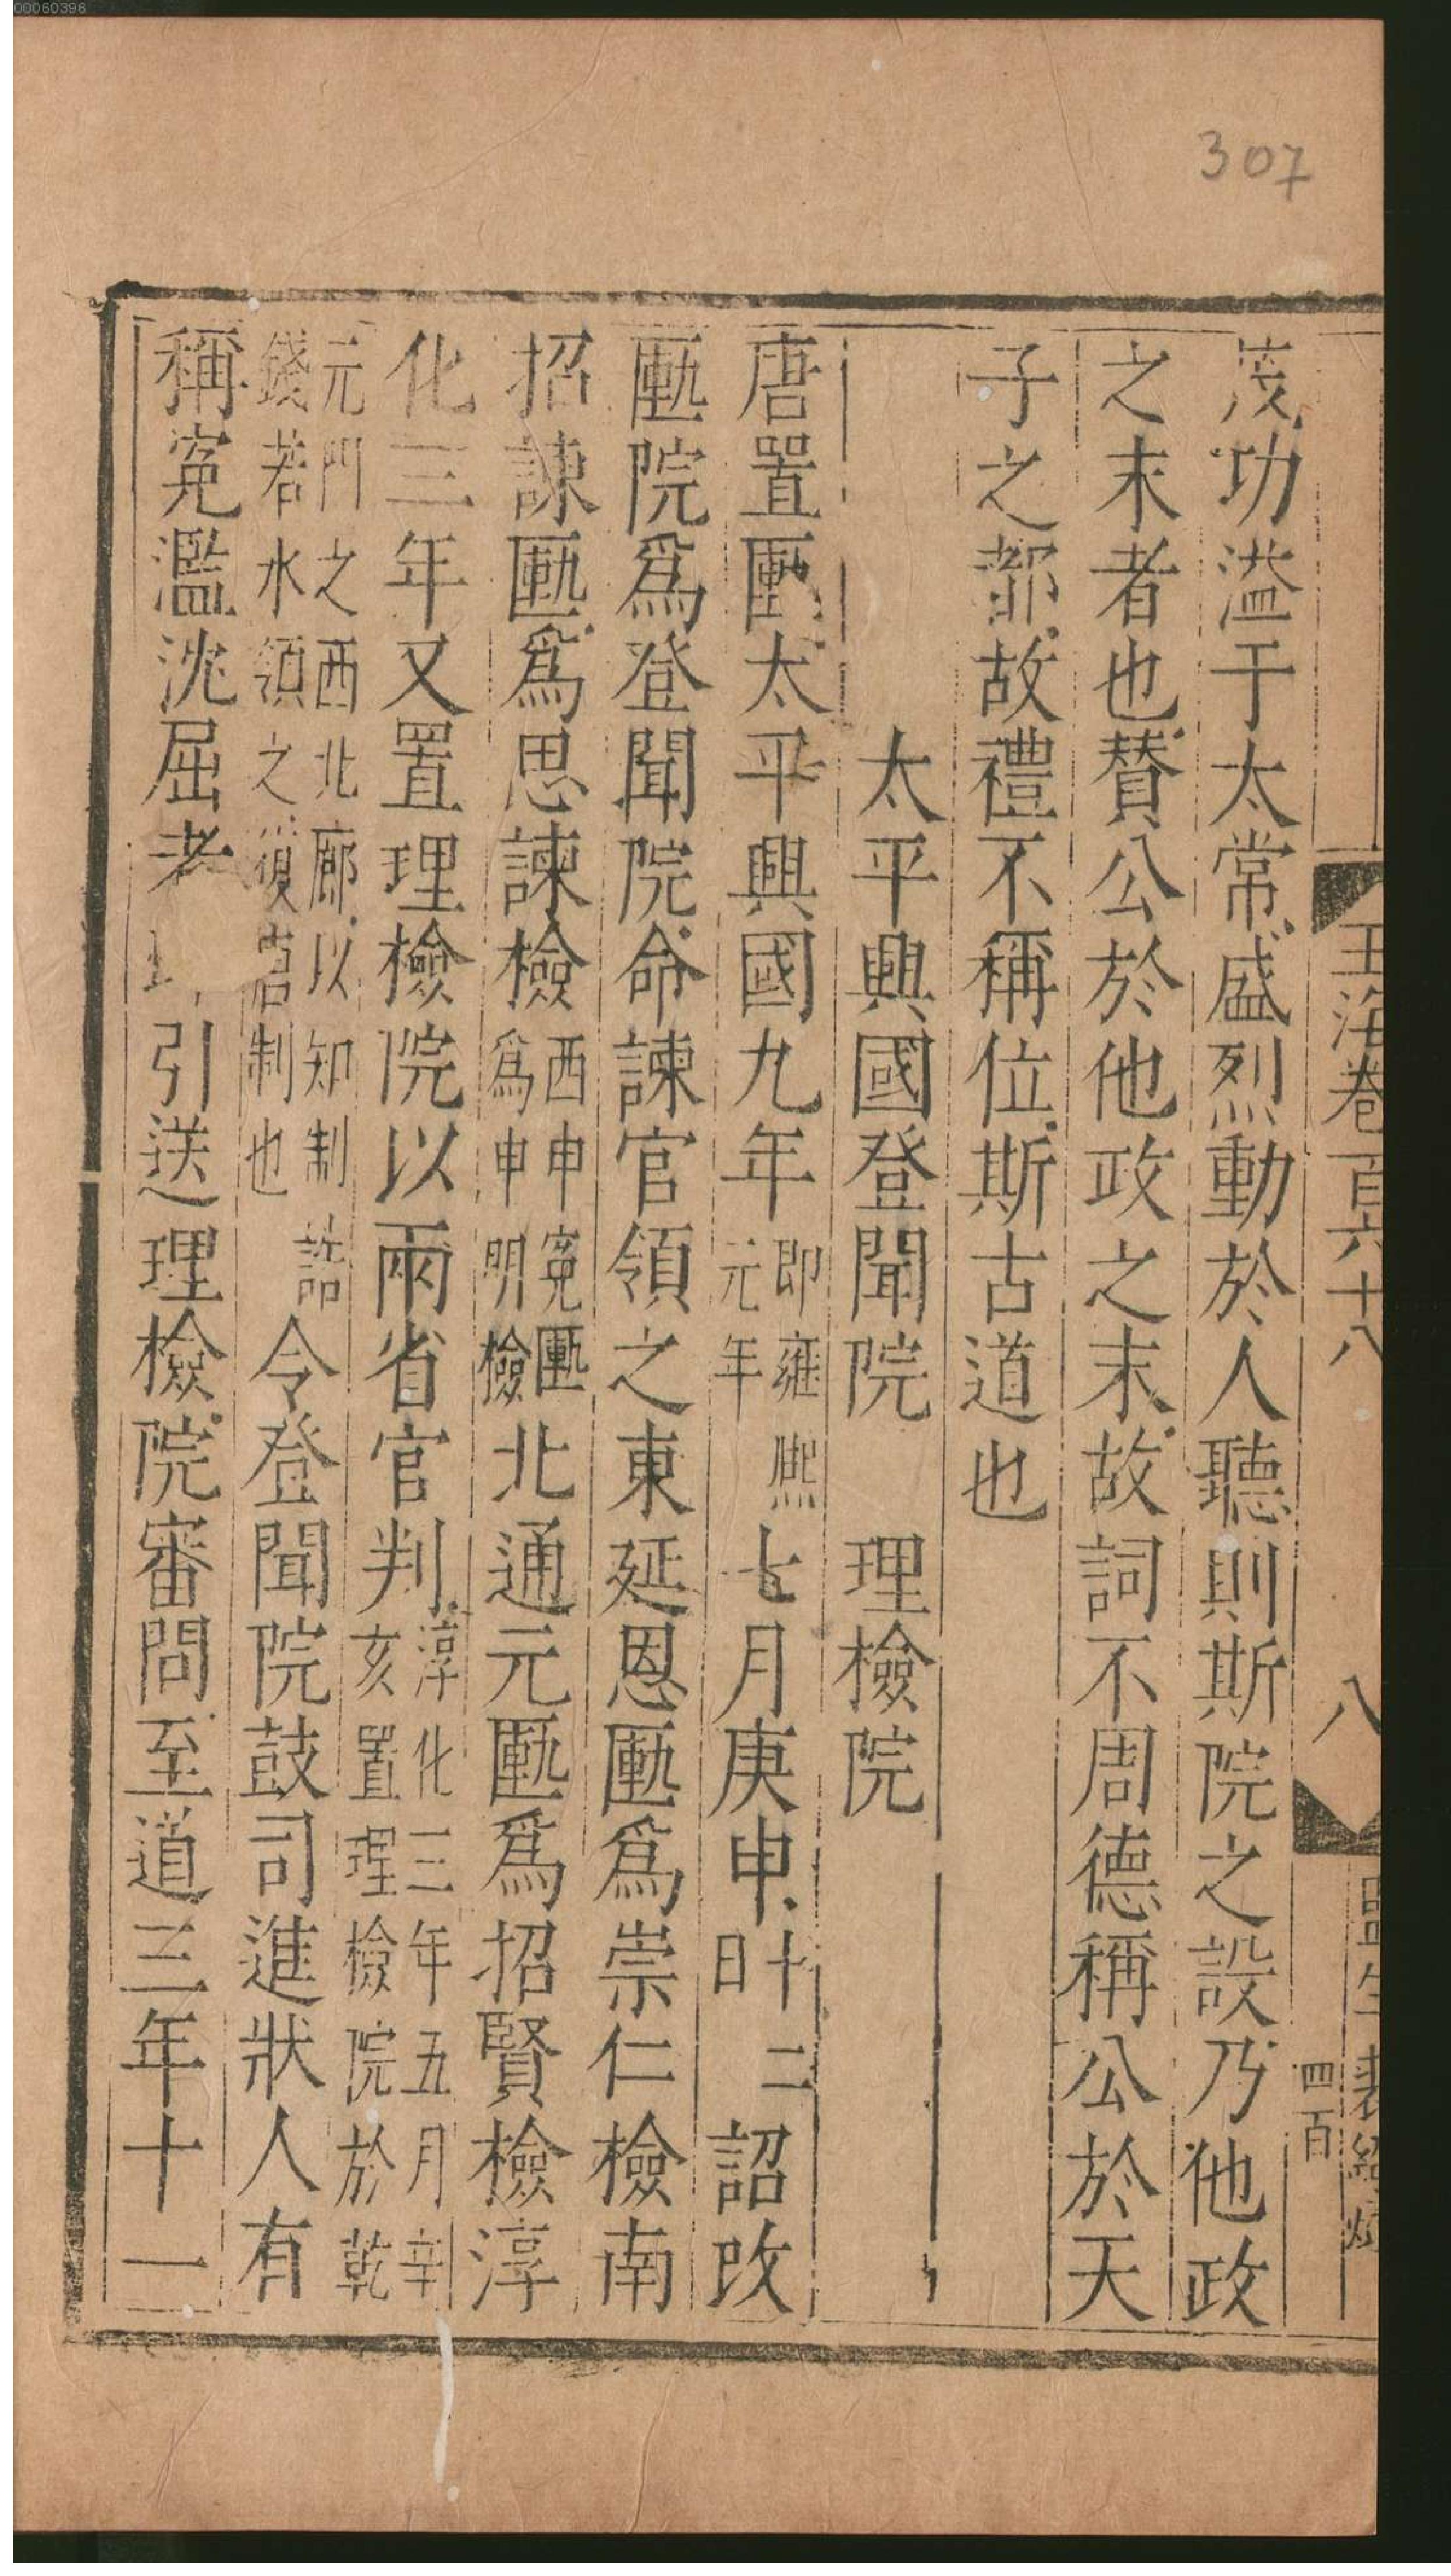 00060398
307
玉海卷一百六十八
八
四百
茂功溢于太常盛烈動於人聽則斯院之設乃他政
之末者也贊公於他政之末故詞不周德稱公於天
子之都故禮不稱位斯古道也
太平興國登聞院 理檢院
唐置匭太平興國九年即雍熙元年七月庚申十二日詔改
匭院爲登聞院命諫官領之東延恩匭爲崇仁檢南
招諫匭爲思諫檢西申寃匭爲申明檢北通元匭爲招賢檢淳
化三年又置理檢院以兩省官判淳化三年五月辛亥置理檢院於乾
元門之西北廊以知制誥錢若水領之復唐制也令登聞院鼓司進狀人有
稱寃濫沈屈者 引送理檢院審問至道三年十一